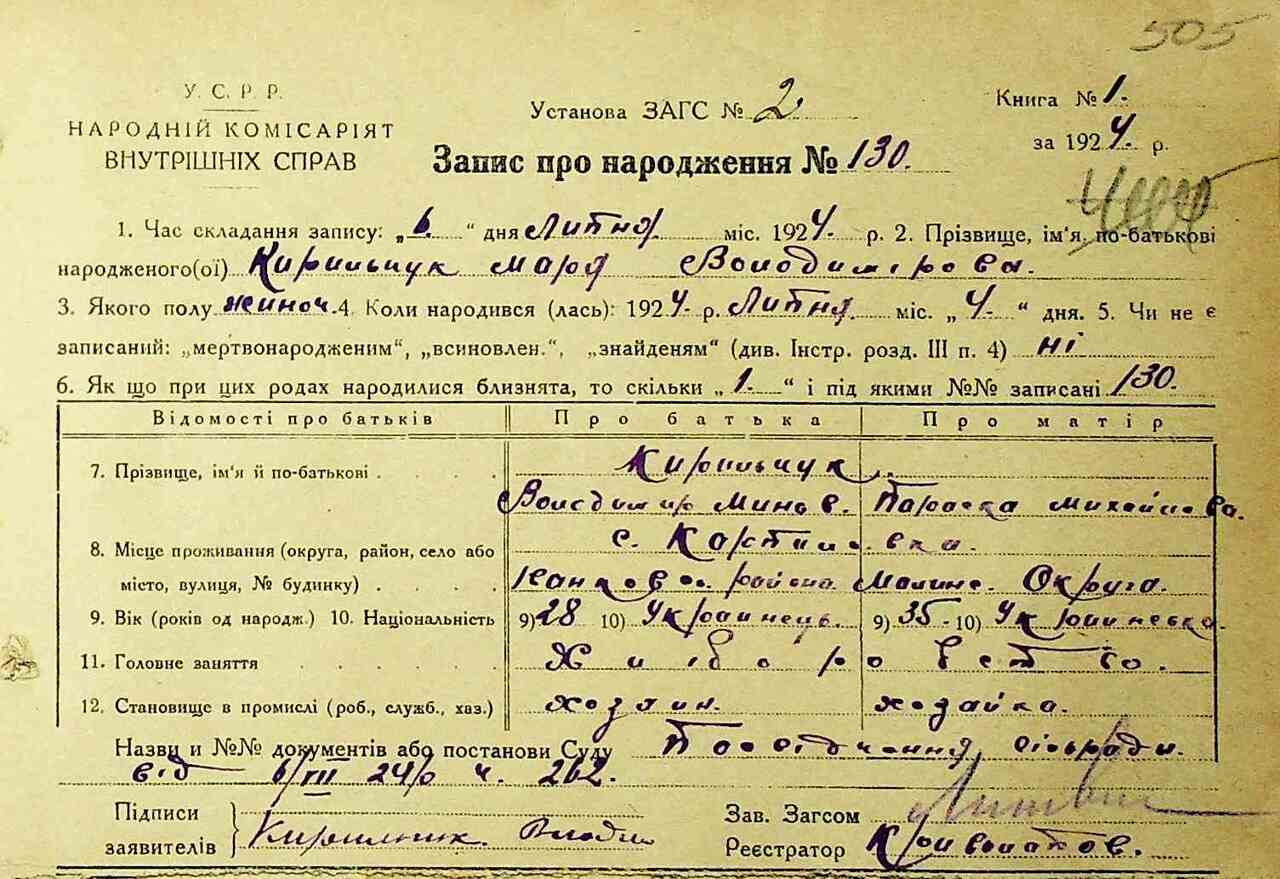 505
У. С. Р. Р.
НАРОДНІЙ КОМІСАРІЯТ
ВНУТРІШНІХ СПРАВ
Установа ЗАГС № 2
Книга № 1.
за 1924. р.
Запис про народження № 130.
1. Час складання запису: „6.“ дня Липня міс. 1924. р. 2. Прізвище, ім'я, по-батькові
народженого(ої) Кирильчук Маря Володимірова.
3. Якого полу жиноч. 4. Коли народився (лась): 1924. р. Липня міс. „4.“ дня. 5. Чи не є
записаний: „мертвонародженим“, „всиновлен.“, „знайденям“ (див. Інстр. розд. III п. 4) ні
6. Як що при цих родах народилися близнята, то скільки „1.“ і під якими №№ записані 130.
Відомості про батьків Про батька Про матір
7. Прізвище, ім'я й по-батькові . . . . Кирильчук
Володимир Минов. Параска Михайлова.
8. Місце проживання (округа, район, село або с. Карпиловка.
місто, вулиця, № будинку) . . . . района Малинс. Округа.
9. Вік (років од народж.) 10. Національність 9) 28 10) Українець. 9) 35 - 10) Українська.
11. Головне заняття . . . . . . Хліборобство.
12. Становище в промислі (роб., служб., хаз.) хозяин. хозайка.
Назви и №№ документів або постанови Суду Посвідчення сільради.
від 6/VII 24 р ч. 262.
Підписи
заявителів Кирильчик
Зав. Загсом
Реєстратор